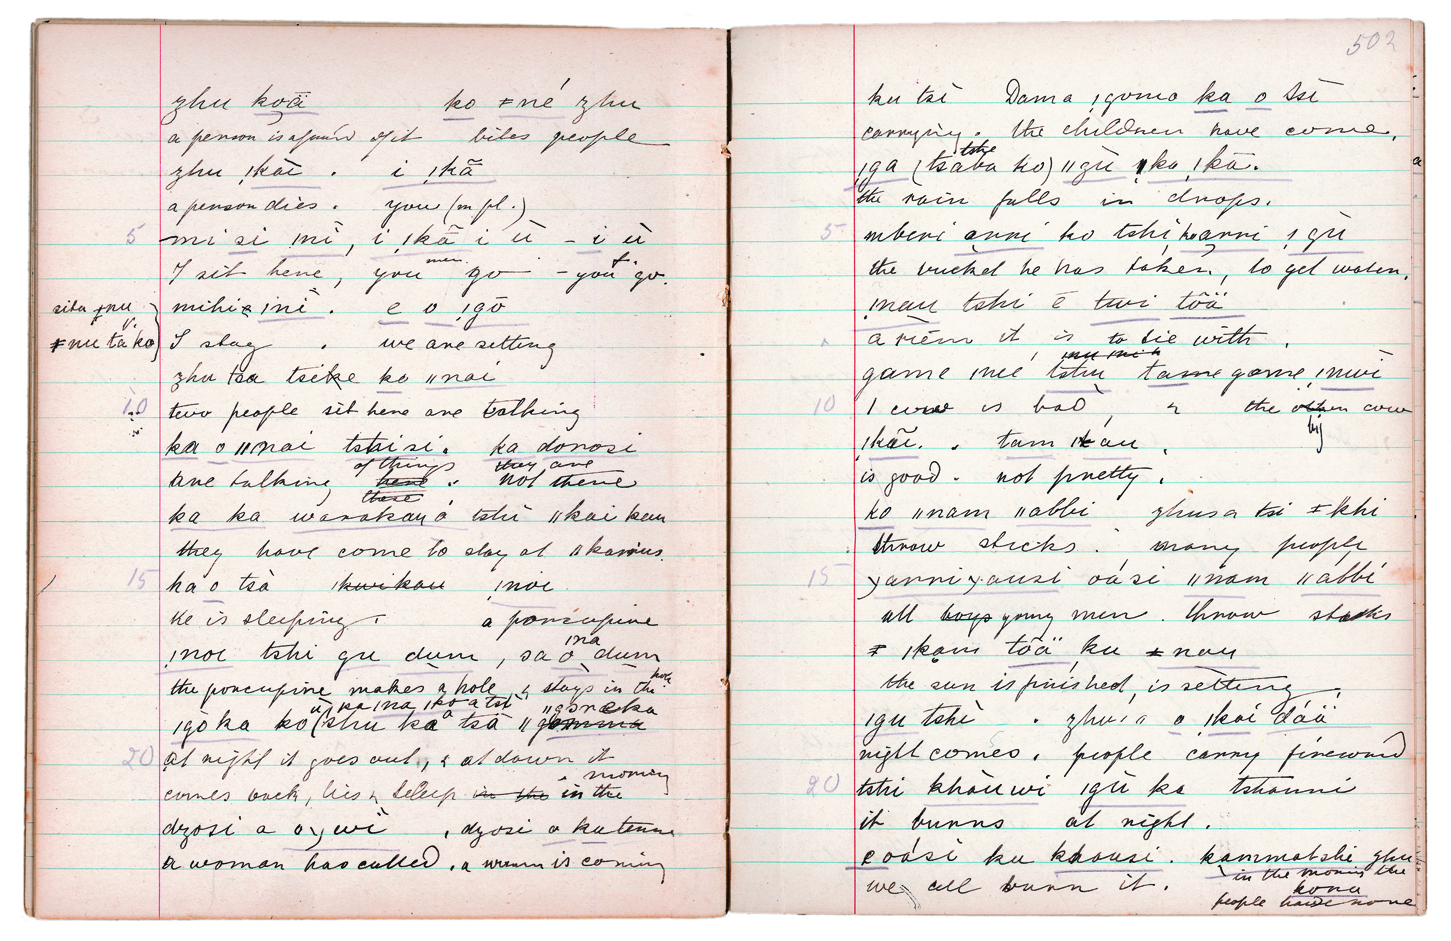 zhu koä ko ǂné zhu
a person is afraid of it bites people
zhu ǀkāi . i ǀkã
a person dies . you (m pl.)
5 mi si ǀnì, i ǀkã i ù – i ù
I sit here, you men go – you f. go.
mihi ǀnì . e o ǀgō
sita ǂnu
ǂnu ta ko
I stay . we are setting
zhu tsa tsike ko ǁnai
10 two people sit here are talking
ka o ǁnai tshisi . ka donosi
are talking of things here these . they are not there
ka ka warakau o tshi ǁkai kau
they have come to stay at
15 ha o tsà ǀkwikau ǀnoi
He is sleeping . a porcupine
ǀnoe tshi gu dum, sa o ǀna dum
the porcupine makes a hole, & stays in the hole
ǀgò ka ko (shu ka a tsà
20 at night it goes out, & at dawn it
comes back, lies & sleep in the in the morning
dzosi a , dzosi a ka tenna
a woman has called . a woman is coming
502
ku tsi Dama ǀgomo ka o tsi
carrying . the children have come .
ǀga (tsaba ko) ǁgù ǀka ǀkã .
the rain falls in drops .
5 mberi arri ko tshi ha arri ǀgù
the bucket he has taken, to get water .
ǀnau tshi ē twi tõä
a riem it is to tie with .
game ǀné tshu tama game ǀnwi
10 1 cow is bad, & the other cow
ǀkãi . . tam ǀkau .
is good . not pretty .
ko ǁnam ǁabbi zhusa tsi ǂkhi
throw sticks . many people
15 oási ǁnam ǁabbi
all boys young men . throw sticks
ǂ ǀkam tõä ku ǂnau
the sun is finished, is setting .
ǀgu tshi . zhusa o ǀkai dáä
night comes . people carry firewood
20 tshi khòuwi ǀgù ka tshauni
it burns at night .
e oási ku khausi . kammatshe zhu
we all burn it . in the morning the
kona
people have none